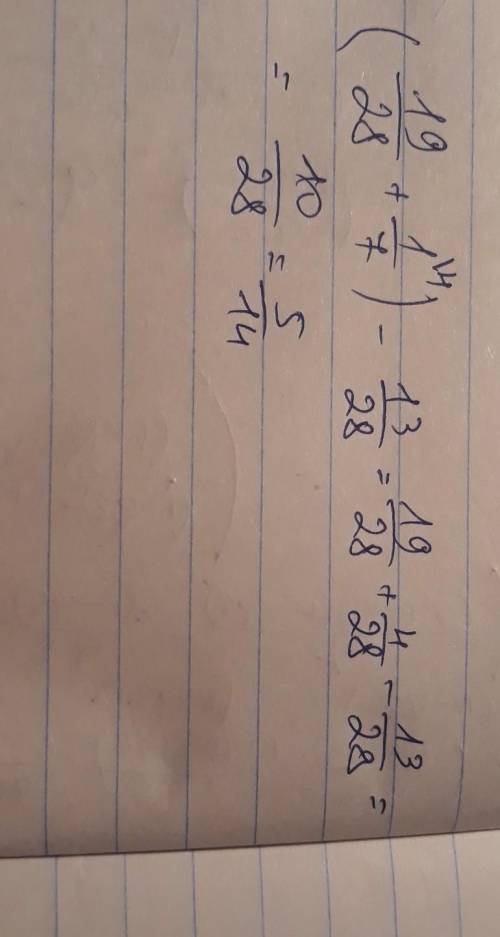 (19/28 + 1/7 \4) - 13/28 = 19/28 + 4/28 - 13/28 =
= 10/28 = 5/14